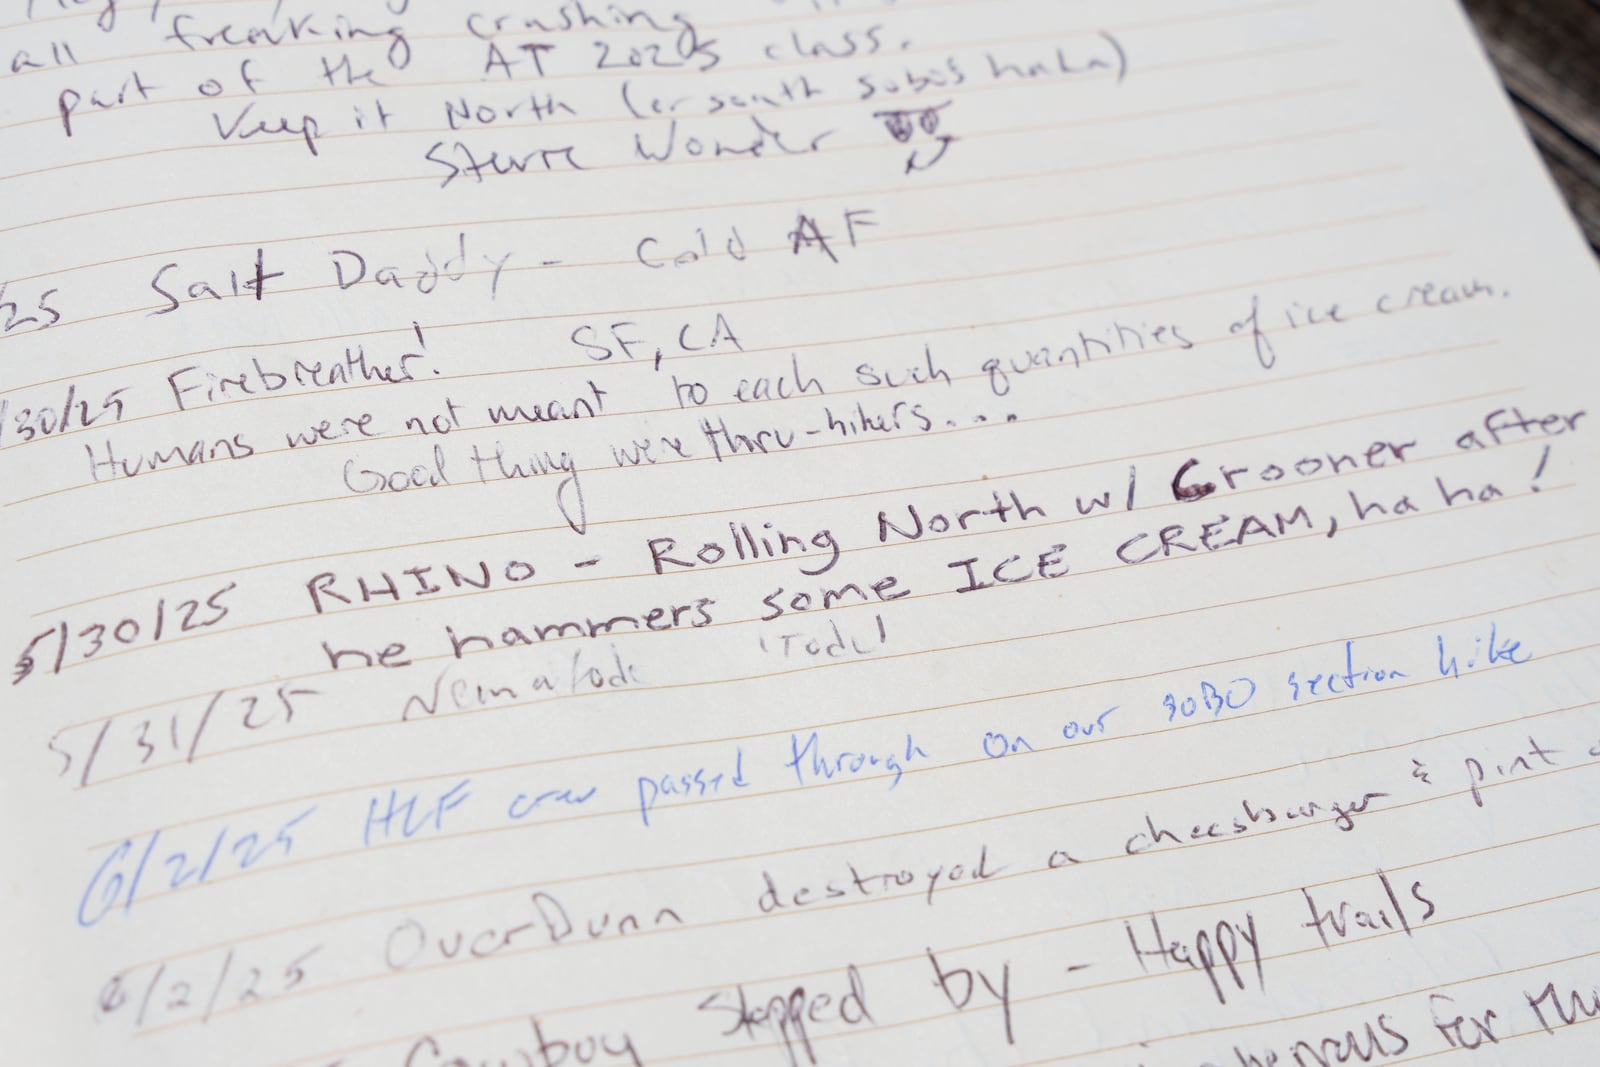 all freaking crashing
part of the AT 2025 class.
Keep it North (or south sobos haha)
Stevie Wonder
25 Salt Daddy - Cold AF
/30/25 Firebreather! SF, CA
Humans were not meant to each such quantities of ice cream.
Good thing we're thru-hikers....
5/30/25 RHINO - Rolling North w/ Crooner after
he hammers some ICE CREAM, ha ha!
5/31/25 Nematode 'Tode'
6/2/25 HLF crew passed through on our SOBO section hike
6/2/25 OverDunn destroyed a cheesburger & pint
Cowboy stopped by - Happy trails
for